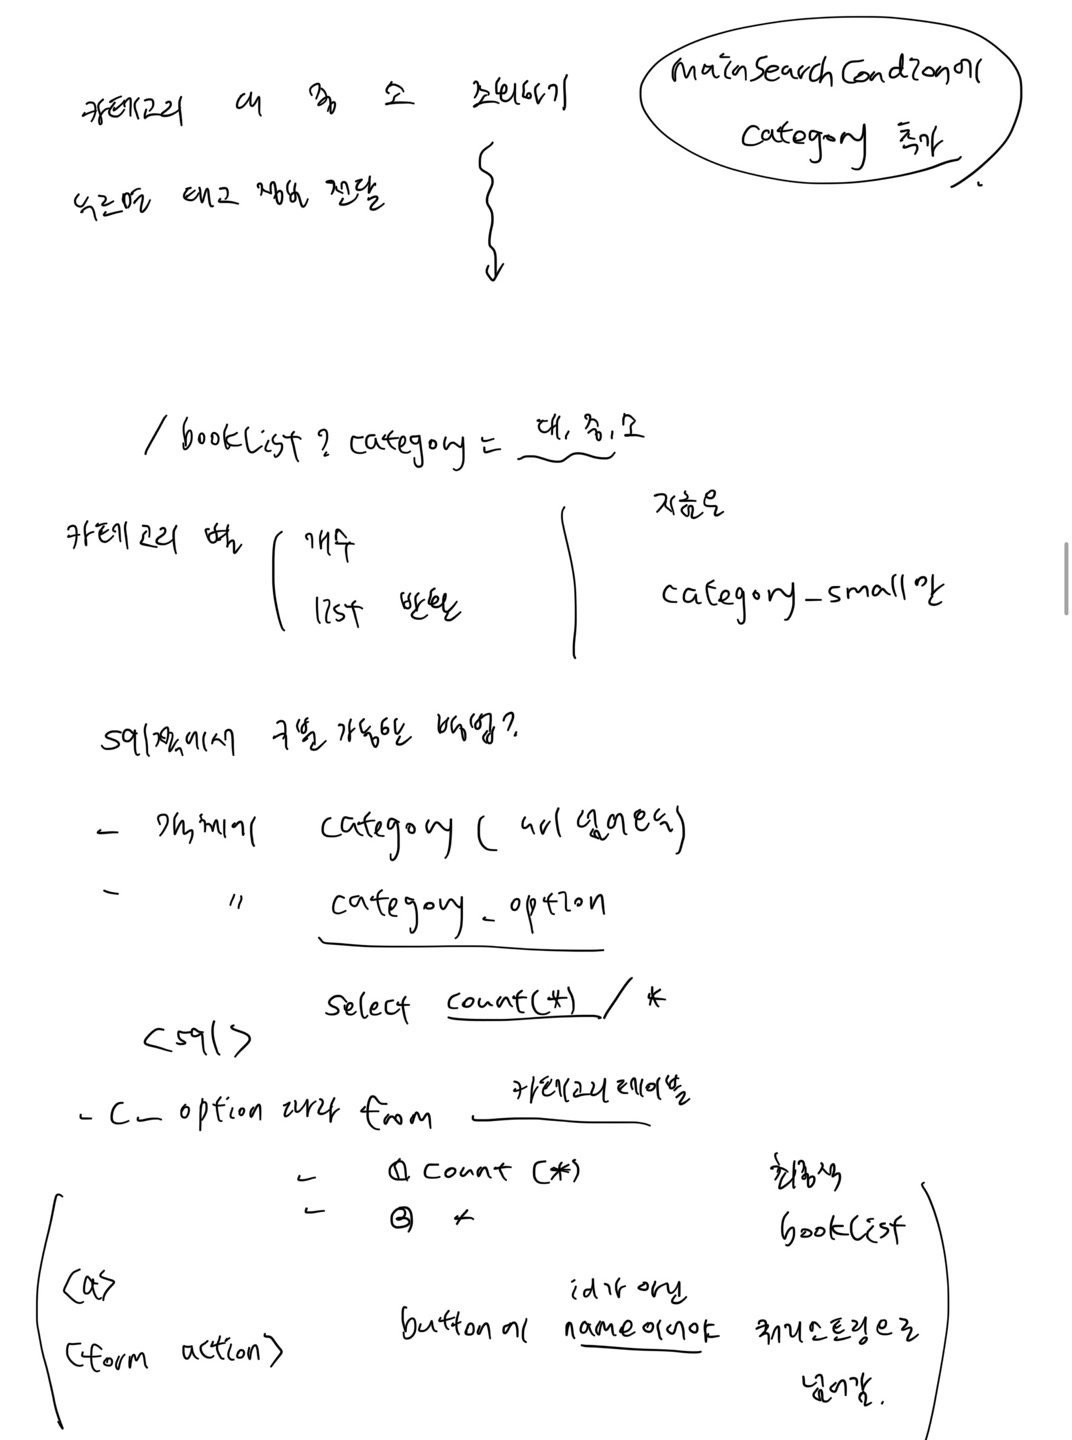 mainSearchCondion에
category 추가
카테고리 대 중 소 조회하기
누르면 태그 정보 전달
/booklist? category = 대, 중, 소
카테고리 별 개수
list 반환
지금은
category_small만
sql쪽에서 구별 가능한 방법?
- 객체에 category ( url 넘어온 )
- " category_option
select count(*) / *
<sql>
- c_ option 따라 from 카테고리 테이블
- ① count (*)
- ② *
최종적
booklist
<a>
<form action>
button에 id가 아닌
name이어야 쿼리스트링으로
넘어감.